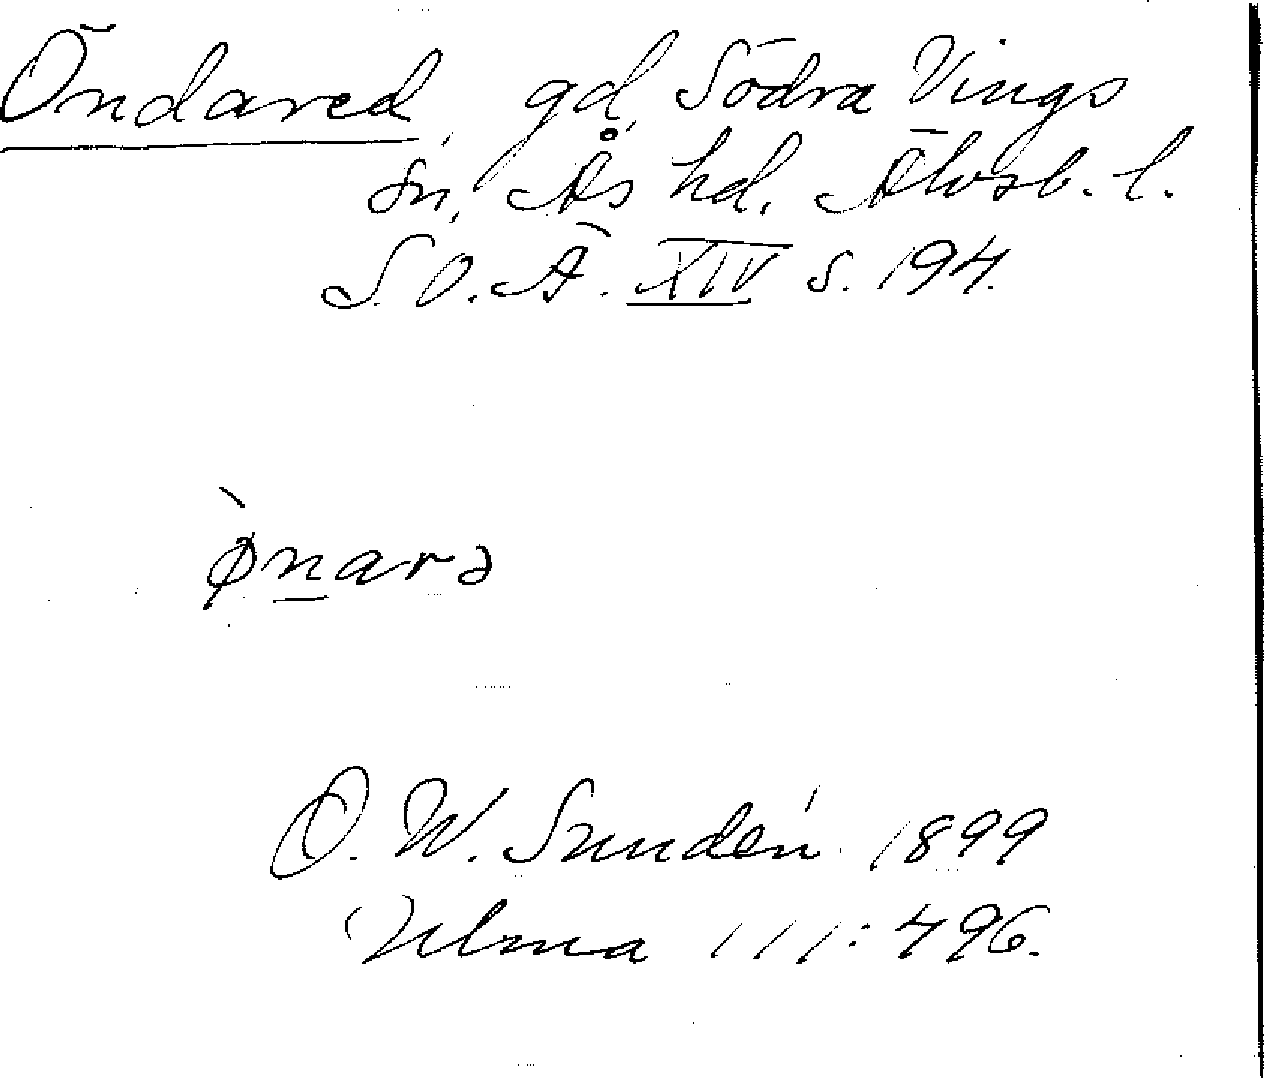 Öndared, gd, Södra Vings
sn, Ås hd, Älvsb. l.
S. O. Ä. XIV s. 194.
ø̀narə
O. W. Sundén 1899
Ulma 111:496.